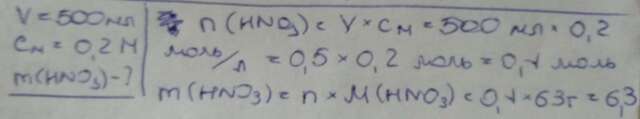 V = 500 мл
Cм = 0,2 М
m(HNO3) - ?
n(HNO3) = V × Cм = 500 мл · 0,2
моль/л = 0,5 × 0,2 моль = 0,1 моль
m(HNO3) = n × M(HNO3) = 0,1 × 63г = 6,3